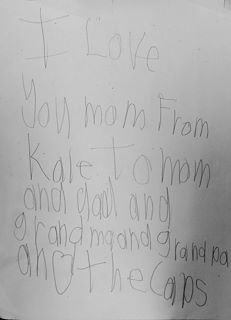 I Love
You mom From
Kale To mom
and gaal and
grandma and grandpa
and ♡ the Caps